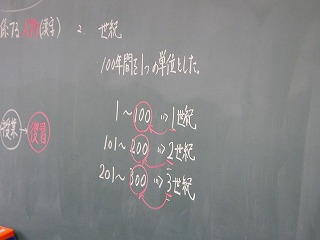 係する人物(漢字)
2. 世紀
100年間を1つの単位とした。
1〜100⇒1世紀
101〜200⇒2世紀
201〜300⇒3世紀
授業→復習